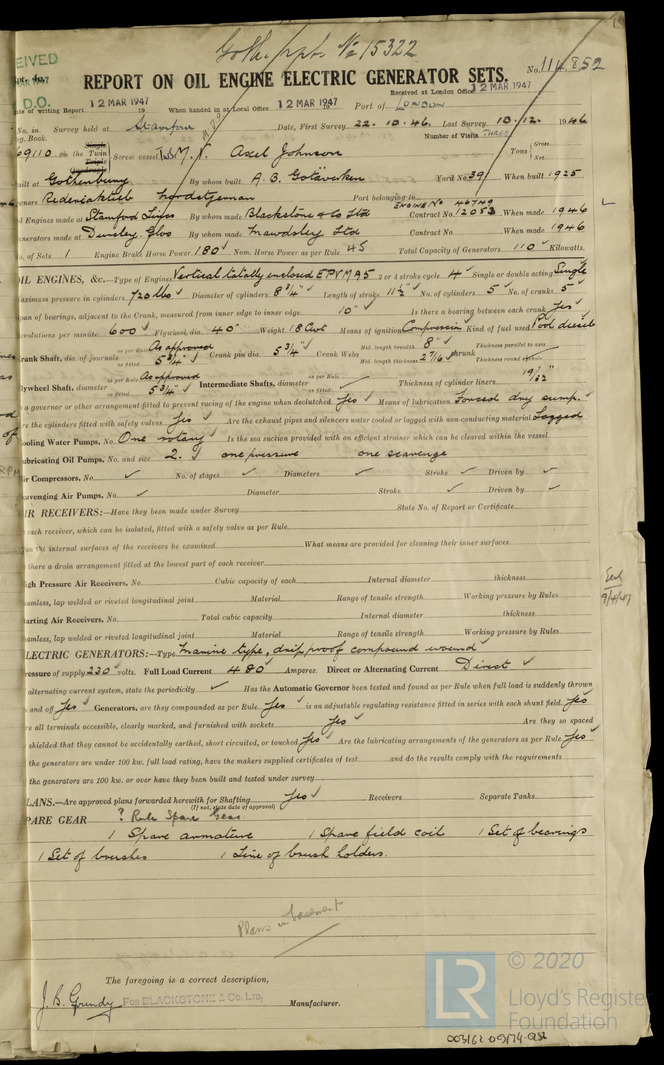 Goth. rpt. No 15322
EIVED
No. 114,852
REPORT ON OIL ENGINE ELECTRIC GENERATOR SETS.
MAR 1947
D.O.
Received at London Office 12 MAR 1947
ate of writing Report 12 MAR 1947 19 When handed in at Local Office 12 MAR 1947 19 Port of London
No. in Survey held at Stamford Date, First Survey 22.10.46. Last Survey 10.12.1946
eg. Book. Number of Visits Three
69110 on the Single Twin Triple Quadruple Screw vessel M.V. Axel Johnson Tons Gross Net
uilt at Gothenburg By whom built A.B. Gotaverken Yard No. 39 When built 1925
wners Rederiaktieb Nordstjernan Port belonging to
Engine No 46749
Oil Engines made at Stamford Lincs By whom made Blackstone & Co Ltd Contract No. 12053 When made 1946
enerators made at Dursley, Glos By whom made Mawdsley Ltd Contract No. When made 1946
No. of Sets 1 Engine Brake Horse Power 180 Nom. Horse Power as per Rule 45 Total Capacity of Generators 110 Kilowatts.
OIL ENGINES, &c.—Type of Engines Vertical totally enclosed EPVMA5 2 or 4 stroke cycle 4 Single or double acting Single
aximum pressure in cylinders 720 lbs Diameter of cylinders 8 3/4" Length of stroke 11 1/2" No. of cylinders 5 No. of cranks 5
pan of bearings, adjacent to the Crank, measured from inner edge to inner edge 10" Is there a bearing between each crank Yes
evolutions per minute 600 Flywheel dia. 40" Weight 18 Cwt Means of ignition Compression Kind of fuel used Pool diesel
rank Shaft, dia. of journals as per Rule As approved as fitted 5 3/4" Crank pin dia. 5 3/4" Crank Webs Mid. length breadth 8" Mid. length thickness 2 7/16" shrunk Thickness parallel to axis Thickness round eyehole
lywheel Shaft, diameter as per Rule As approved as fitted 5 3/4" Intermediate Shafts, diameter as per Rule as fitted Thickness of cylinder liners 19/32"
a governor or other arrangement fitted to prevent racing of the engine when declutched Yes Means of lubrication Forced dry sump.
re the cylinders fitted with safety valves Yes Are the exhaust pipes and silencers water cooled or lagged with non-conducting material Lagged
ooling Water Pumps, No. One rotary Is the sea suction provided with an efficient strainer which can be cleared within the vessel
ubricating Oil Pumps, No. and size 2. one pressure one scavenge
ir Compressors, No. No. of stages Diameters Stroke Driven by
cavenging Air Pumps, No. Diameter Stroke Driven by
IR RECEIVERS:—Have they been made under Survey State No. of Report or Certificate
each receiver, which can be isolated, fitted with a safety valve as per Rule
an the internal surfaces of the receivers be examined What means are provided for cleaning their inner surfaces
there a drain arrangement fitted at the lowest part of each receiver
igh Pressure Air Receivers, No. Cubic capacity of each Internal diameter thickness
eamless, lap welded or riveted longitudinal joint Material Range of tensile strength Working pressure by Rules
tarting Air Receivers, No. Total cubic capacity Internal diameter thickness
eamless, lap welded or riveted longitudinal joint Material Range of tensile strength Working pressure by Rules
9/4/47
LECTRIC GENERATORS:—Type Marine type, drip proof compound wound
ressure of supply 220 volts. Full Load Current 480 Amperes. Direct or Alternating Current Direct
alternating current system, state the periodicity Has the Automatic Governor been tested and found as per Rule when full load is suddenly thrown
and off Yes Generators, are they compounded as per Rule Yes is an adjustable regulating resistance fitted in series with each shunt field Yes
re all terminals accessible, clearly marked, and furnished with sockets Yes Are they so spaced
shielded that they cannot be accidentally earthed, short circuited, or touched Yes Are the lubricating arrangements of the generators as per Rule Yes
the generators are under 100 kw. full load rating, have the makers supplied certificates of test and do the results comply with the requirements
the generators are 100 kw. or over have they been built and tested under survey
LANS.—Are approved plans forwarded herewith for Shafting Yes Receivers Separate Tanks
(If not, state date of approval)
PARE GEAR ? Rule Spare Gear
1 Spare armature 1 Spare field coil 1 Set of bearings
1 Set of brushes 1 Line of brush holders.
Plans in basement
The foregoing is a correct description,
J. B. Grundy For BLACKSTONE & Co. LTD, Manufacturer.
LR © 2020
Lloyd's Register
Foundation
003162-03174-0182